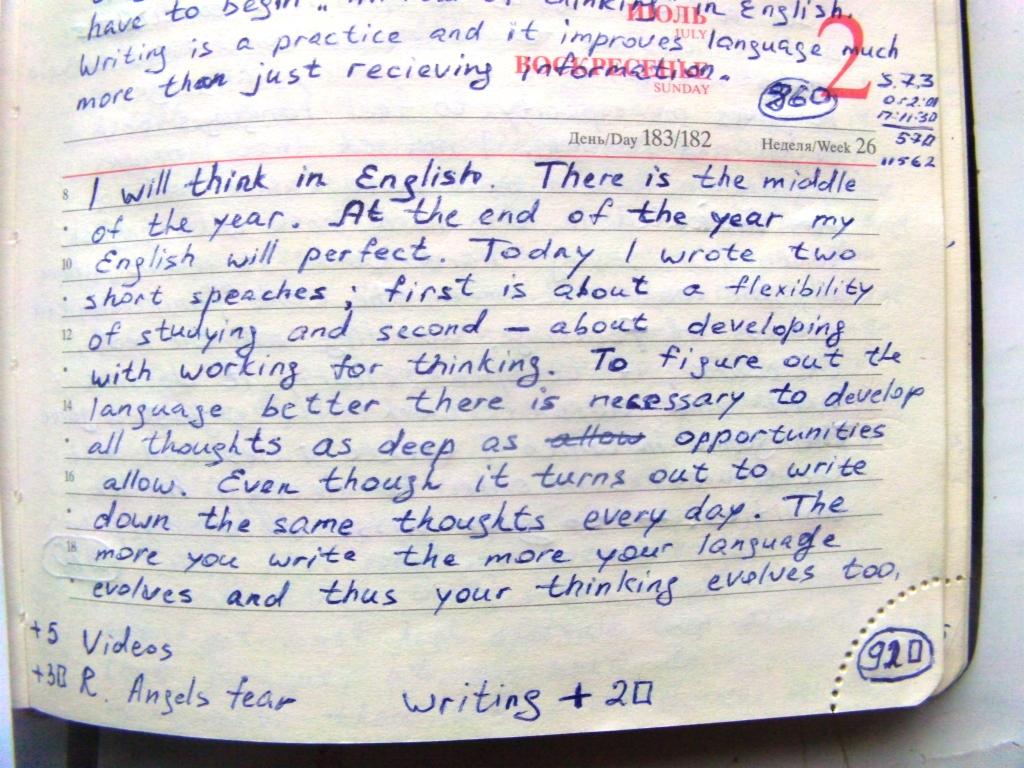 have to begin in English.
ИЮЛЬ
JULY
2
writing is a practice and it improves language much
ВОСКРЕСЕНЬЕ
SUNDAY
more than just recieving information.
860
День/Day 183/182
Неделя/Week 26
570
11562
8 I will think in English. There is the middle
of the year. At the end of the year my
10 English will perfect. Today I wrote two
short speaches; first is about a flexibility
12 of studying and second – about developing
with working for thinking. To figure out the
14 language better there is necessary to develop
all thoughts as deep as allow opportunities
16 allow. Even though it turns out to write
down the same thoughts every day. The
18 more you write the more your language
evolves and thus your thinking evolves too.
+5 Videos
920
+30 R. Angels fear
writing + 20